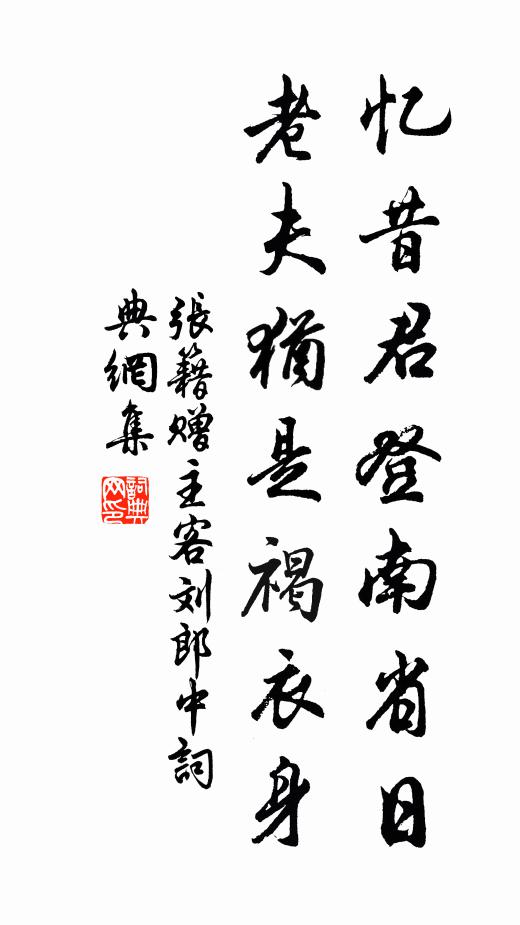 忆昔君登南省日
老夫犹是褐衣身
張籍赠主客刘郎中詞
典網集
詞典网印